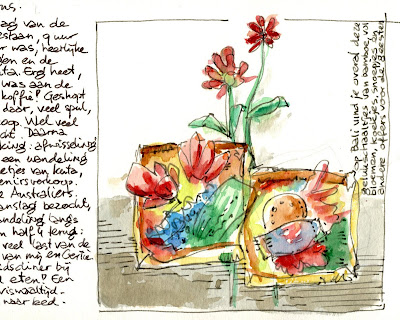 ns.
ag van de
estaan, 9 uur
r was, heerlijke
gen en de
uta. Erg heet,
was aan de
koffie! Geshopt
door, veel spul,
oop. Wel veel
cht. Daarna
king: afwisseling
een wandeling
etjes van Kuta,
enirsverkoop.
e Australiërs.
bezocht,
andeling langs
n half 7 terug.
veel last van de
van mij en Gertie.
ndsdiner bij
l eten! Een
vismaaltijd.
naar bed.
Op Bali vind je overal deze
van bamboe, vol
bloemen, koekjes, snoepjes en
andere offers voor de geesten